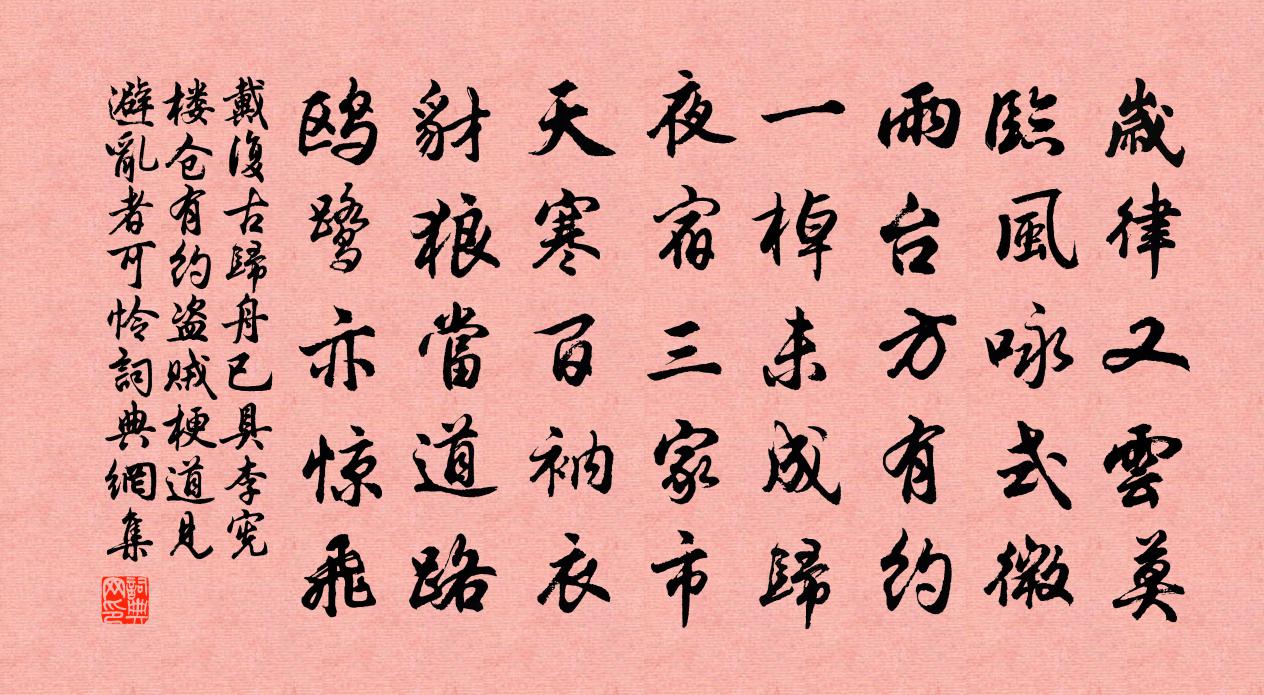 歲律又雲莫
臨風咏式微
兩台方有約
一棹未成歸
夜宿三家市
天寒百衲衣
豺狼當道路
鸥鹭亦惊飛
戴復古歸舟已具李宪
楼仓有約盗贼梗道見
避亂者可怜詞典網集
詞典网印